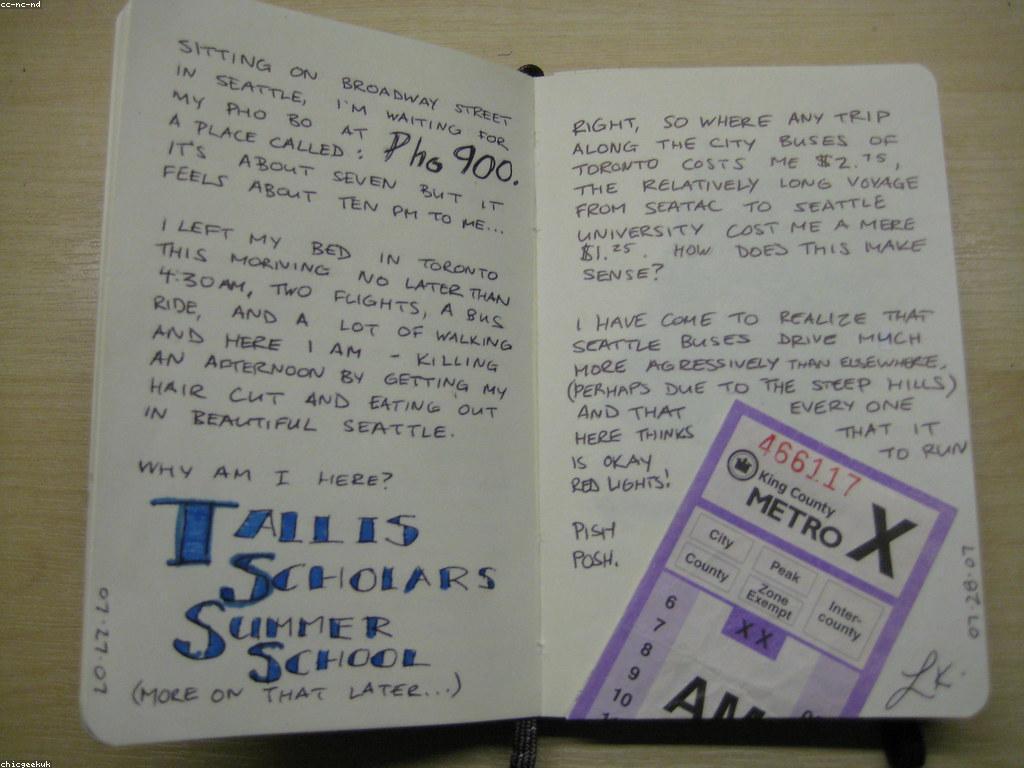 cc-nc-nd
SITTING ON BROADWAY STREET
IN SEATTLE, I'M WAITING FOR
MY PHO BO AT
A PLACE CALLED: Pho 900.
IT'S ABOUT SEVEN BUT IT
FEELS ABOUT TEN PM TO ME...
I LEFT MY BED IN TORONTO
THIS MORNING NO LATER THAN
4:30AM, TWO FLIGHTS, A BUS
RIDE, AND A LOT OF WALKING
AND HERE I AM - KILLING
AN AFTERNOON BY GETTING MY
HAIR CUT AND EATING OUT
IN BEAUTIFUL SEATTLE.
WHY AM I HERE?
TALLIS
SCHOLARS
SUMMER
SCHOOL
(MORE ON THAT LATER...)
07.27.07
RIGHT, SO WHERE ANY TRIP
ALONG THE CITY BUSES OF
TORONTO COSTS ME $2.75,
THE RELATIVELY LONG VOYAGE
FROM SEATAC TO SEATTLE
UNIVERSITY COST ME A MERE
$1.25. HOW DOES THIS MAKE
SENSE?
I HAVE COME TO REALIZE THAT
SEATTLE BUSES DRIVE MUCH
MORE AGRESSIVELY THAN ELSEWHERE.
(PERHAPS DUE TO THE STEEP HILLS)
AND THAT EVERY ONE
HERE THINKS THAT IT
IS OKAY TO RUN
RED LIGHTS!
PISH
POSH.
466117
King County
METRO X
City Peak Inter-
County Zone county
Exempt
XX
6
7
8
9
10
AM
07.28.07
LK.
chicgeekuk